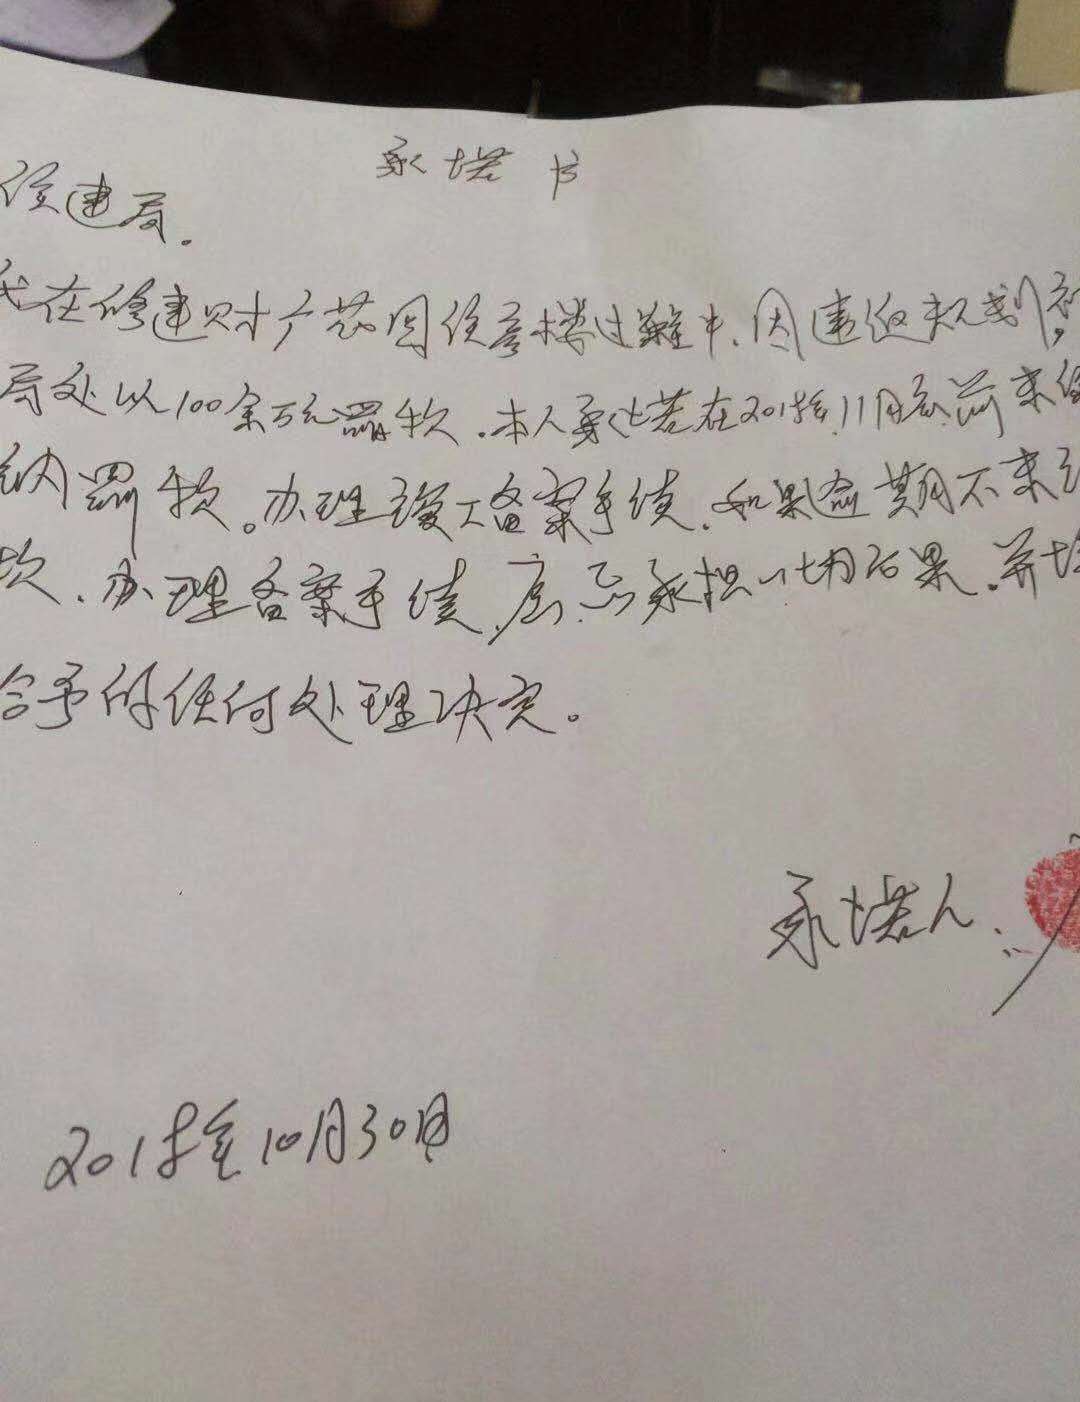 承堪书
住建局.
我在修建财广花园住房楼过程中.因违反规划
局处以100余万元罚款.本人承诺在2018年11月底前来
纳罚款。办理竣工备案手续.如果逾期不来
款.办理备案手续.愿意承担一切后果.并
给予的任何处理决定。
承堪人.
2018年10月30日